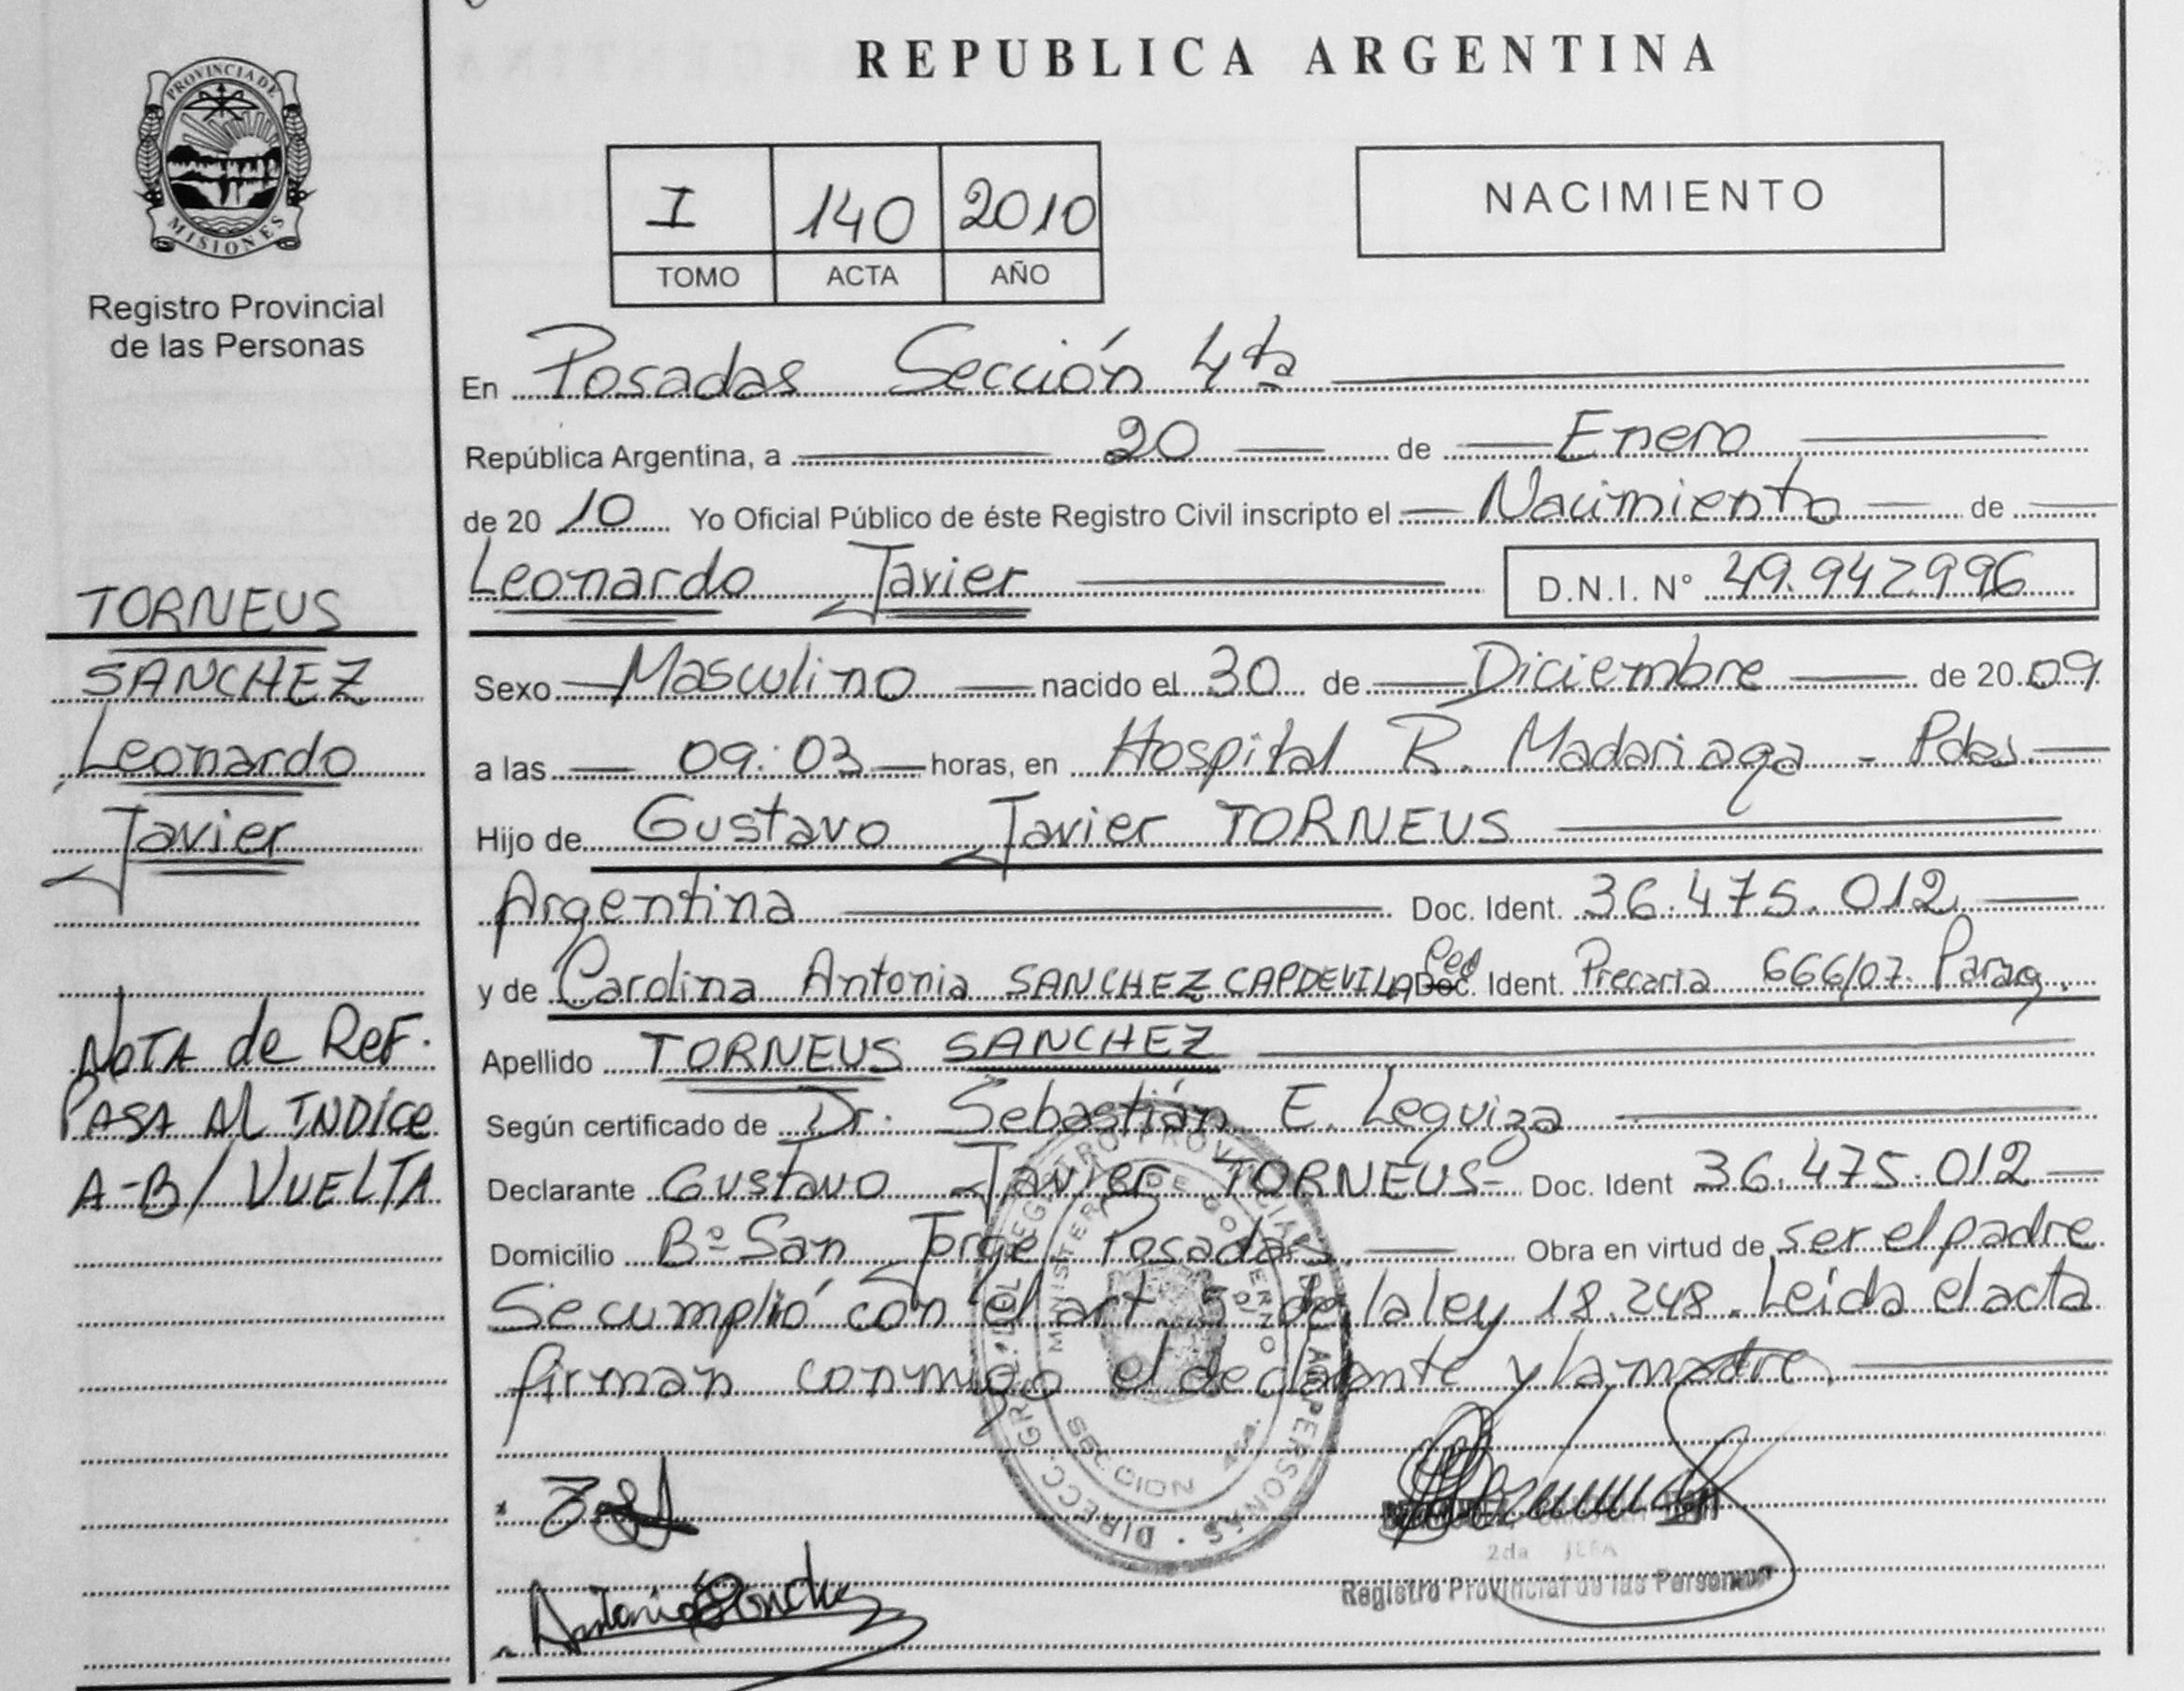 REPUBLICA ARGENTINA
PROVINCIA DE
MISIONES
Registro Provincial
de las Personas
I 140 2010
TOMO ACTA AÑO
NACIMIENTO
En Posadas Sección 4ta
República Argentina, a 20 de Enero
de 2010 Yo Oficial Público de éste Registro Civil inscripto el Nacimiento de
Leonardo Javier D.N.I. N° 49.942996
Sexo Masculino nacido el 30 de Diciembre de 2009
a las 09:03 horas, en Hospital R. Madariaga - Pdas.
Hijo de Gustavo Javier TORNEUS
Argentina Doc. Ident. 36.475.012
y de Carolina Antonia SANCHEZ CAPDEVILA Doc. Ident. Precaria 666/07. Parag.
Apellido TORNEUS SANCHEZ
Según certificado de Dr. Sebastián E. Leguiza
Declarante Gustavo Javier TORNEUS- Doc. Ident 36.475.012
Domicilio Bº San Jorge Posadas Obra en virtud de ser el padre
Se cumplió con el art. 5 de la ley 18.248. Leida el acta
firman conmigo el declarante y la madre
TORNEUS
SANCHEZ
Leonardo
Javier
NOTA de REF.
PASA AL INDICE
A-B/ VUELTA
DIRECC. GRAL. DEL REGISTRO PROVINCIAL DE LAS PERSONAS
MINISTERIO DE GOBIERNO
SECCION 4ta.
Antonia Sanchez
2da JEFA
Registro Provincial de las Personas